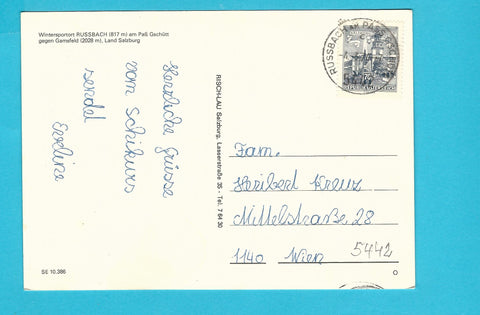 Wintersportort RUSSBACH (817 m) am Paß Gschütt
gegen Gamsfeld (2028 m), Land Salzburg
Herzliche Grüsse
vom Schikurs
sendet
Eveline
RISCH-LAU Salzburg, Lasserstraße 35 - Tel. 7 64 30
RUSSBACH AM PASS
5442
Fam.
Heribert Kreuz
Mittelstraße 28
1140 Wien
5442
SE 10.386
O